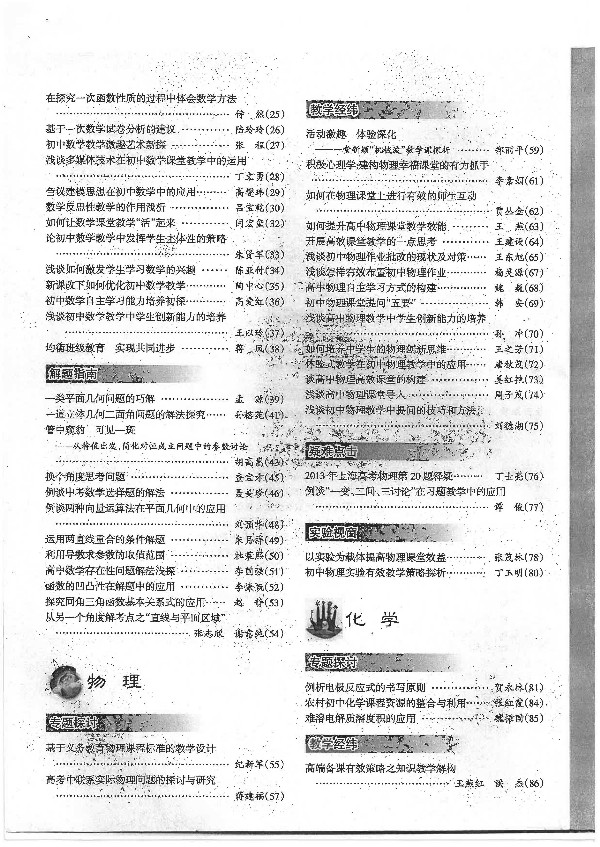 在探究一次函数性质的过程中体会数学方法
(25)
基于一次数学试卷分析的建议 陆玲玲(26)
初中数学教学激趣艺术新探 张 程(27)
浅谈多媒体技术在初中数学课堂教学中的运用
丁文勇(28)
刍议建模思想在初中数学中的应用 (29)
数学反思性教学的作用浅析 (30)
如何让数学课堂教学“活”起来 闫宏玺(32)
论初中数学教学中发挥学生主体性的策略
朱贤军(33)
浅谈如何激发学生学习数学的兴趣 陈亚村(34)
新课改下如何优化初中数学教学 陶中心(35)
初中数学自主学习能力培养初探 高爱红(36)
浅谈初中数学教学中学生创新能力的培养
王以珍(37)
均衡班级教育 实现共同进步 蒋 凤(38)
解题指南
一类平面几何问题的巧解 孟 (39)
一道立体几何二面角问题的解法探究 孙榕花(41)
管中窥豹 可见一斑
——从特征出发,简化对恒成立问题中的参数讨论
胡高嵩(43)
换个角度思考问题 (45)
例谈中考数学选择题的解法 聂美玲(46)
例谈两种向量运算法在平面几何中的应用
刘丽华(48)
运用两直线重合的条件解题 朱月清(49)
利用导数求参数的取值范围 (50)
高中数学存在性问题解法浅探 李国强(51)
函数的凹凸性在解题中的应用 (52)
探究同角三角函数基本关系式的应用 赵 静(53)
从另一个角度解考点之“直线与平面区域”
张志成 谢春艳(54)
物 理
专题探讨
基于义务教育物理课程标准的教学设计
纪新军(55)
高考中联系实际物理问题的探讨与研究
蒋建福(57)
教学经纬
活动激趣 体验深化
——一堂新颖“机械波”教学课探析 郑丽平(59)
积极心理学:建构物理幸福课堂的有力抓手
李素娟(61)
如何在物理课堂上进行有效的师生互动
贾丛金(62)
如何提升高中物理课堂教学效能 王 燕(63)
开展高效课堂教学的一点思考 王建设(64)
浅谈初中物理作业批改的现状及对策 王东旭(65)
浅谈怎样有效布置初中物理作业 杨灵源(67)
高中物理自主学习方式的构建 魏 巍(68)
初中物理课堂提问“五要” 韩 安(69)
浅谈高中物理教学中学生创新能力的培养
孙 冲(70)
如何培养中学生的物理创新思维 王之芳(71)
体验式教学在初中物理教学中的应用 (72)
谈高中物理高效课堂的构建 吴红艳(73)
浅谈高中物理课堂导入 周子成(74)
浅谈初中物理教学中提问的技巧和方法
刘德湖(75)
疑难点击
2013年上海高考物理第20题释疑 丁士英(76)
例谈“一变、二问、三讨论”在习题教学中的应用
谭 俊(77)
实验视窗
以实验为载体提高物理课堂效益 张茂林(78)
初中物理实验有效教学策略探析 丁玉明(80)
化 学
专题探讨
例析电极反应式的书写原则 贺永林(81)
农村初中化学课程资源的整合与利用 张红霞(84)
难溶电解质溶度积的应用 魏保国(85)
教学经纬
高端备课有效策略之知识教学解构
王燕红 侯 杰(86)